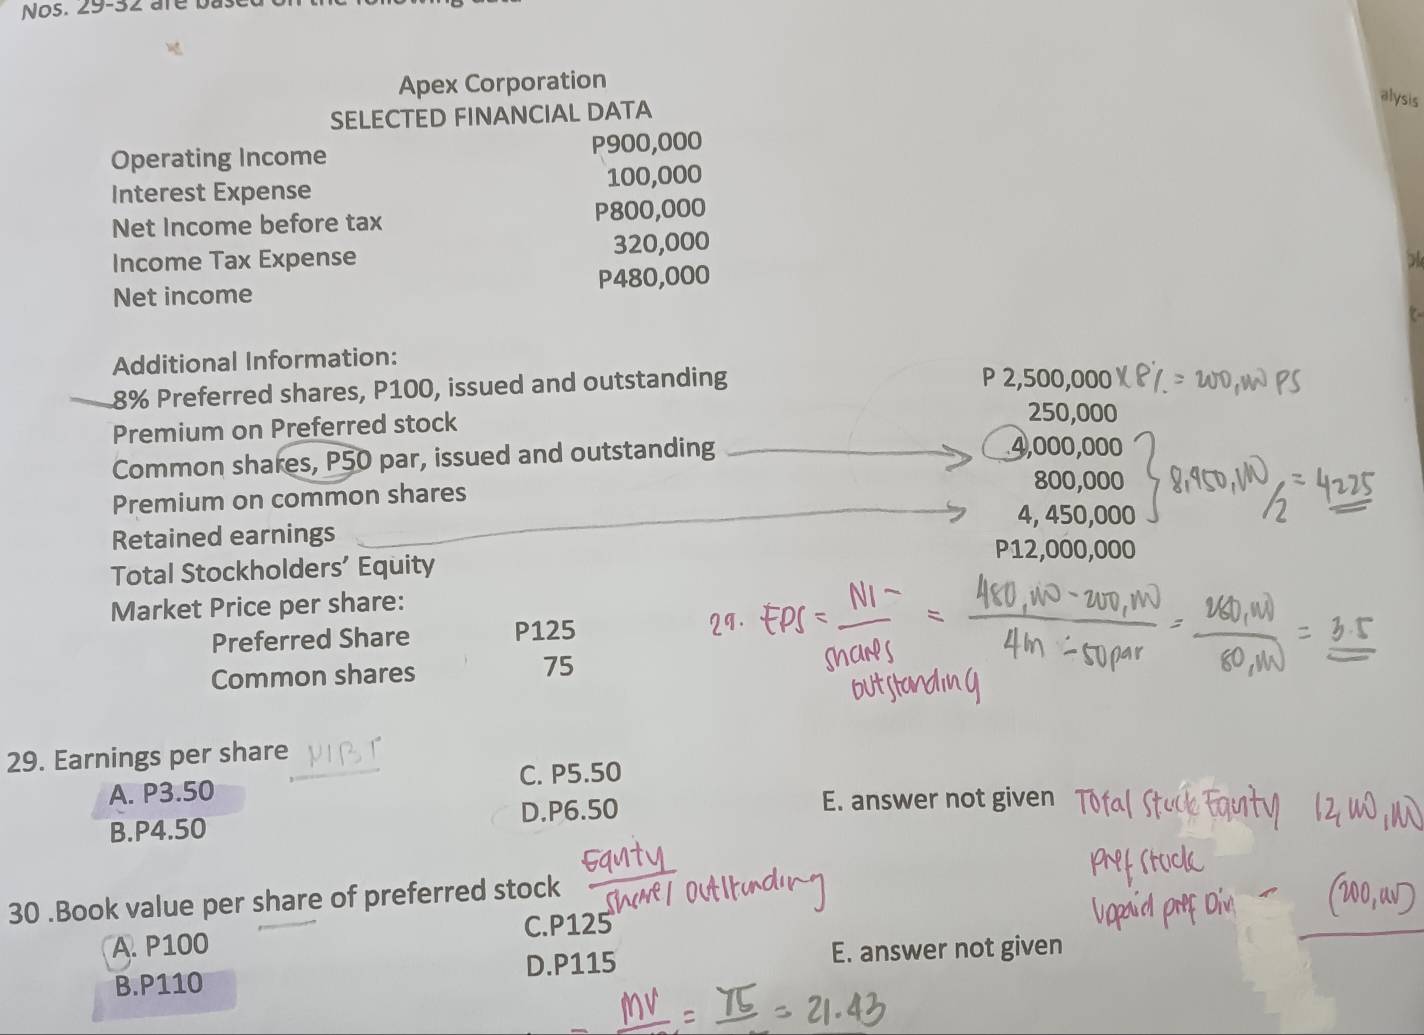 Nos. 29-32 are based on the following data
alysis
Apex Corporation
SELECTED FINANCIAL DATA
Operating Income P900,000
Interest Expense 100,000
Net Income before tax P800,000
Income Tax Expense 320,000
Net income P480,000
Additional Information:
8% Preferred shares, P100, issued and outstanding P 2,500,000 x 8% = 200,000 PS
Premium on Preferred stock 250,000
Common shares, P50 par, issued and outstanding 4,000,000
Premium on common shares 800,000 8,450,000/2 = 4225
Retained earnings 4, 450,000
Total Stockholders' Equity P12,000,000
Market Price per share:
Preferred Share P125
Common shares 75
29. EPS = NI - / shares outstanding = 480,000 - 200,000 / 4m ÷ 50 par = 280,000 / 80,000 = 3.5
29. Earnings per share NIBT
A. P3.50
B.P4.50
C. P5.50
D.P6.50
E. answer not given
Total Stock Equity 12,000,000
Pref Stock
Unpaid pref Div (200,000)
30 .Book value per share of preferred stock
Equity / Share / outstanding
A. P100
B.P110
C.P125
D.P115
E. answer not given
MV = 75 = 21.43